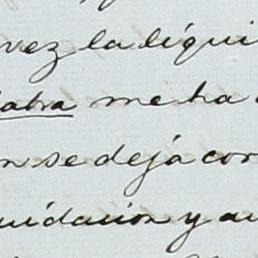 vez la liqui
abra me ha
n se dejá cor
uidacion y au